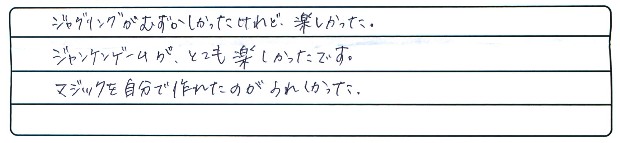 ジャグリングがむずかしかったけれど、楽しかった。
ジャンケンゲームが、とても楽しかったです。
マジックを自分で作れたのがうれしかった。